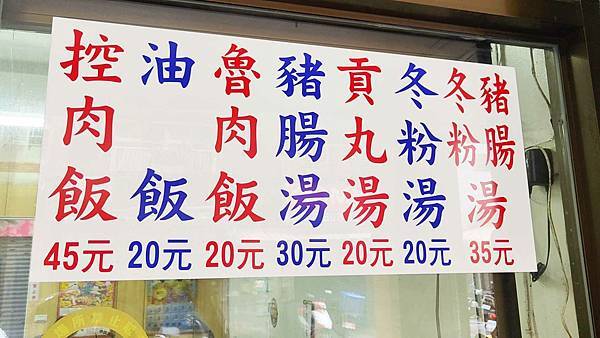 控肉飯 45元
油飯 20元
魯肉飯 20元
豬腸湯 30元
貢丸湯 20元
冬粉湯 20元
豬腸冬粉湯 35元